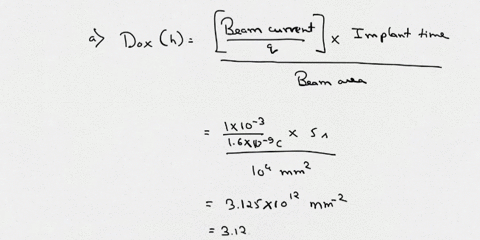 a) Dox (h) = [Beam current / q] × Implant time / Beam area
= 1×10⁻³ / 1.6×10⁻⁹C × 5s / 10⁴ mm²
= 3.125×10¹² mm⁻²
= 3.12